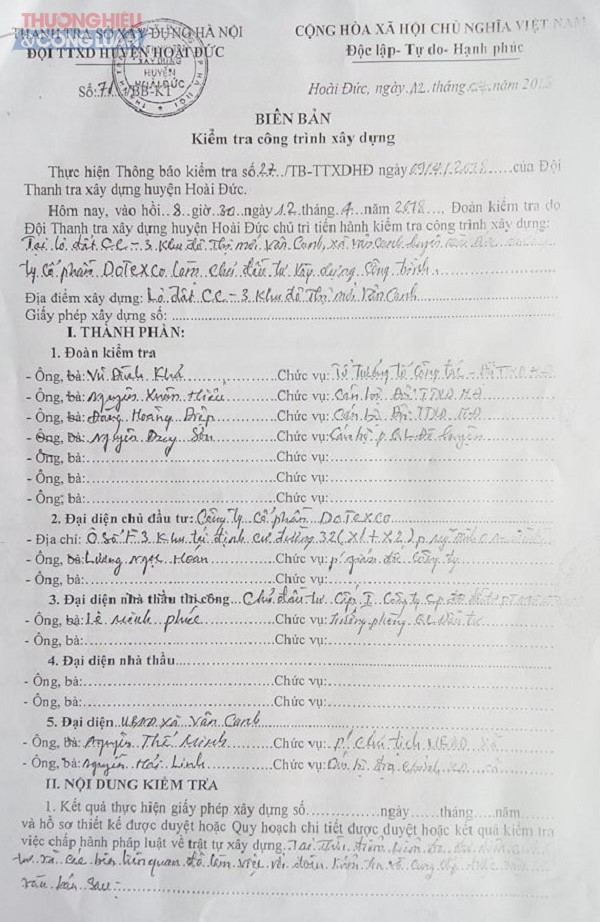 THƯƠNGHIỆU
&CÔNGLUẬN
THANH TRA SỞ XÂY DỰNG HÀ NỘI
ĐỘI TTXD HUYỆN HOÀI ĐỨC
Số: 71/BB-KT
XÂY DỰNG
HUYỆN
HOÀI ĐỨC
CỘNG HÒA XÃ HỘI CHỦ NGHĨA VIỆT NAM
Độc lập- Tự do- Hạnh phúc
Hoài Đức, ngày 12 tháng năm 2018
BIÊN BẢN
Kiểm tra công trình xây dựng
Thực hiện Thông báo kiểm tra số 27 /TB-TTXDHĐ ngày 09/4/2018 của Đội
Thanh tra xây dựng huyện Hoài Đức.
Hôm nay, vào hồi 8 giờ 30 ngày 12 tháng 4 năm 2018, Đoàn kiểm tra do
Đội Thanh tra xây dựng huyện Hoài Đức chủ trì tiến hành kiểm tra công trình xây dựng:
Tại lô đất CC-3 Khu đô thị mới Vân Canh, xã Vân Canh huyện
ty cổ phần DoTexco làm chủ đầu tư xây dựng công trình
Địa điểm xây dựng: Lô đất CC-3 Khu đô thị mới Vân Canh
Giấy phép xây dựng số:
I. THÀNH PHẦN:
1. Đoàn kiểm tra
- Ông, bà: Vũ Đình Khá Chức vụ: Tổ trưởng tổ công tác - Đội TTXD HĐ
- Ông, bà: Nguyễn Xuân Hiếu Chức vụ: Cán bộ Đội TTXD HĐ
- Ông, bà: Hoàng Điệp Chức vụ: Cán bộ Đội TTXD HĐ
- Ông, bà: Nguyễn Duy Chức vụ: Cán bộ p. QLĐT huyện
- Ông, bà: Chức vụ:
- Ông, bà: Chức vụ:
- Ông, bà: Chức vụ:
2. Đại diện chủ đầu tư: Công ty cổ phần DoTexco
- Địa chỉ: Ô số F.3 Khu tái định cư đường 32 (X1+X2)
- Ông, bà: Lương Ngọc Hoan Chức vụ: p. giám đốc Công ty
- Ông, bà: Chức vụ:
3. Đại diện nhà thầu thi công Chủ đầu tư cấp I Công ty
- Ông, bà: Lê Minh Phúc Chức vụ: Trưởng phòng
- Ông, bà: Chức vụ:
4. Đại diện nhà thầu
- Ông, bà: Chức vụ:
- Ông, bà: Chức vụ:
5. Đại diện UBND xã Vân Canh
- Ông, bà: Nguyễn Thế Minh Chức vụ: p. chủ tịch UBND xã
- Ông, bà: Nguyễn Linh Chức vụ:
II. NỘI DUNG KIỂM TRA
1. Kết quả thực hiện giấy phép xây dựng số ngày tháng năm
và hồ sơ thiết kế được duyệt hoặc Quy hoạch chi tiết được duyệt hoặc kết quả kiểm tra
việc chấp hành pháp luật về trật tự xây dựng. Tại thời điểm kiểm tra
các bên liên quan làm việc với đoàn kiểm tra
văn bản sau: